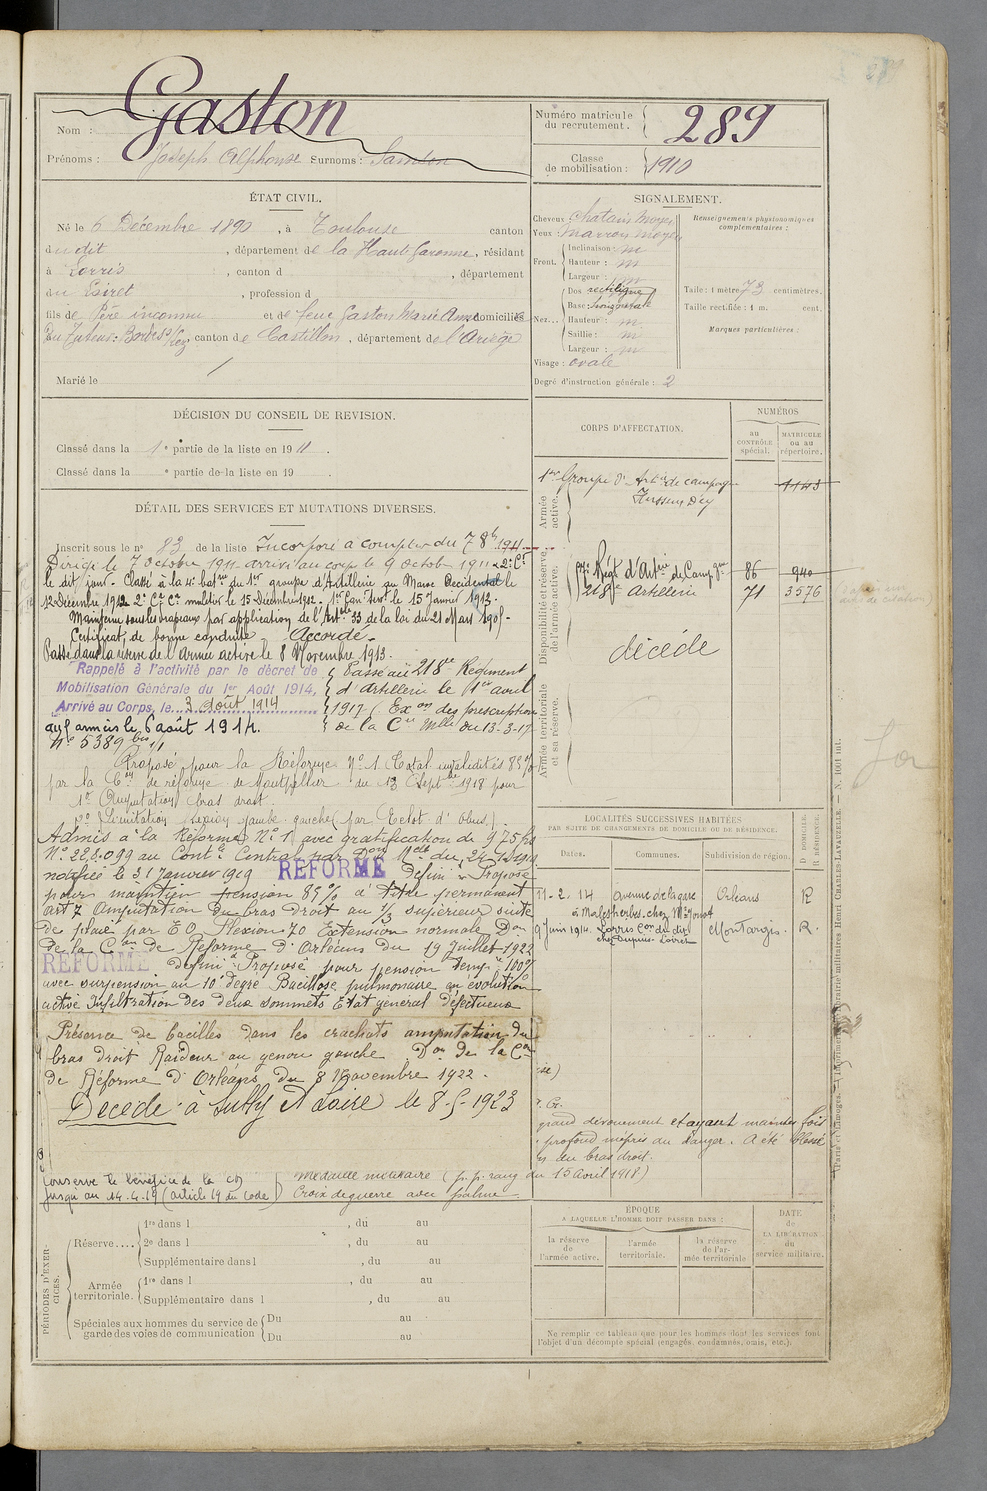 Gaston
Nom :
Prénoms : Joseph Alphonse Surnoms : Samson
Numéro matricule
du recrutement. 289
Classe
de mobilisation : 1910
ÉTAT CIVIL.
Né le 6 Décembre 1890, à Toulouse canton
du dit, département de la Haute Garonne, résidant
à Lorris, canton d , département
du Loiret, profession d
fils de Père inconnu et de feue Gaston Marie Anne domiciliés
canton de Castillon, département de l'Ariège
Marié le
SIGNALEMENT.
Cheveux : chatain moyen
Yeux : marron moyen
Front. Inclinaison : m
Hauteur : m
Largeur : m
Nez... Dos rectiligne
Base : horizontale
Hauteur : m
Saillie : m
Largeur : m
Visage : ovale
Degré d'instruction générale : 2
Renseignements physionomiques
complémentaires :
Taille : 1 mètre 73 centimètres.
Taille rectifiée : 1 m. cent.
Marques particulières :
DÉCISION DU CONSEIL DE REVISION.
Classé dans la 1e partie de la liste en 1911.
Classé dans la e partie de la liste en 19 .
DÉTAIL DES SERVICES ET MUTATIONS DIVERSES.
Inscrit sous le no 83 de la liste Incorporé à compter du 7 8bre 1911
Dirigé le 7 octobre 1911 arrivé au corps le 9 octobre 1911 & 2e Cr
le dit jour. Classé à la 4e batie du 1er groupe d'Artillerie au Maroc Occidental le
12 Décembre 1912 2e Cr Cr muletier le 15 Décembre 1912. 1er Can Servt le 15 Janvier 1913.
Maintenu sous les drapeaux par application de l'Article 33 de la loi du 21 Mars 1905.
Certificat de bonne conduite Accordé.
Passé dans la réserve de l'Armée active le 8 Novembre 1913.
Rappelé à l'activité par le décret de
Mobilisation Générale du 1er Août 1914,
Arrivé au Corps, le 3 août 1914
aux armées le 6 août 1914.
Passé au 218me Régiment
d'artillerie le 1er avril
1917 (Exon des prescriptions
de la Cre Mlle du 13-3-17
No 5389 bis 1/1
Proposé pour la Réforme No 1 (Total invalidités 85 %)
par la Con de réforme de Montpellier du 13 Septbre 1918 pour
1o Amputation bras droit.
2o Limitation flexion jambe gauche (par Eclat d'obus).
Admis à la Réforme No 1 avec gratification de 975 frs
No 228.099 au Contle Central par Don Mlle du 24-1-1919
notifiée le 31 Janvier 1919 RÉFORMÉ défini Proposé
pour maintien pension 85 % à titre permanent
art 7 Amputation du bras droit au 1/3 supérieur suite
de plaie par E O. Flexion 70 Extension normale Don
de la Con de Réforme d'Orléans du 19 Juillet 1922
RÉFORMÉ défini Proposé pour pension Tempre 100%
avec surpension au 10e degré Bacillose pulmonaire en évolution
active Infiltration des deux sommets Etat général défectueux
Présence de bacilles dans les crachats amputation du
bras droit Raideur au genou gauche Don de la Con
de Réforme d'Orléans du 8 Novembre 1922.
Décédé à Sully S Loire le 8-5-1923
Conserve le bénéfice de la
jusqu'au 14.4.19 (article 19 du Code)
Médaille militaire (p. p. rang du 15 avril 1918)
Croix de guerre avec palme
CORPS D'AFFECTATION.
NUMÉROS
au
CONTRÔLE
spécial.
MATRICULE
ou au
répertoire.
Armée
active.
1er Groupe d'Artie de campagne
Hussein Dey
1143
Disponibilité et réserve
de l'armée active.
Régt d'Artrie de Campgne 86 940
218e Artillerie 71 3576
décédé
Armée territoriale
et sa réserve.
LOCALITÉS SUCCESSIVES HABITÉES
PAR SUITE DE CHANGEMENTS DE DOMICILE OU DE RÉSIDENCE.
Dates. Communes. Subdivision de région.
D. DOMICILE.
R. RÉSIDENCE.
11-2-14 avenue de la gare Orléans R
à Malesherbes chez Mr
9 Juin 1914. Lorris Con du dit Montargis. R.
chez Dupuis Loiret
grand dévouement et ayant maintes fois
profond mépris du danger. A été blessé
au bras droit.
PÉRIODES D'EXERCICES.
Réserve.... 1re dans l , du au
2e dans l , du au
Supplémentaire dans l , du au
Armée
territoriale. 1re dans l , du au
Supplémentaire dans l , du au
Spéciales aux hommes du service de
garde des voies de communication Du au
Du au
ÉPOQUE
A LAQUELLE L'HOMME DOIT PASSER DANS :
la réserve
de
l'armée active.
l'armée
territoriale.
la réserve
de l'ar-
mée territoriale
DATE
de
LA LIBÉRATION
du
service militaire.
Ne remplir ce tableau que pour les hommes dont les services font
l'objet d'un décompte spécial (engagés, condamnés, omis, etc.).
Paris et Limoges. — Imprimerie librairie militaires Henri Charles-Lavauzelle — N. 1001 int.